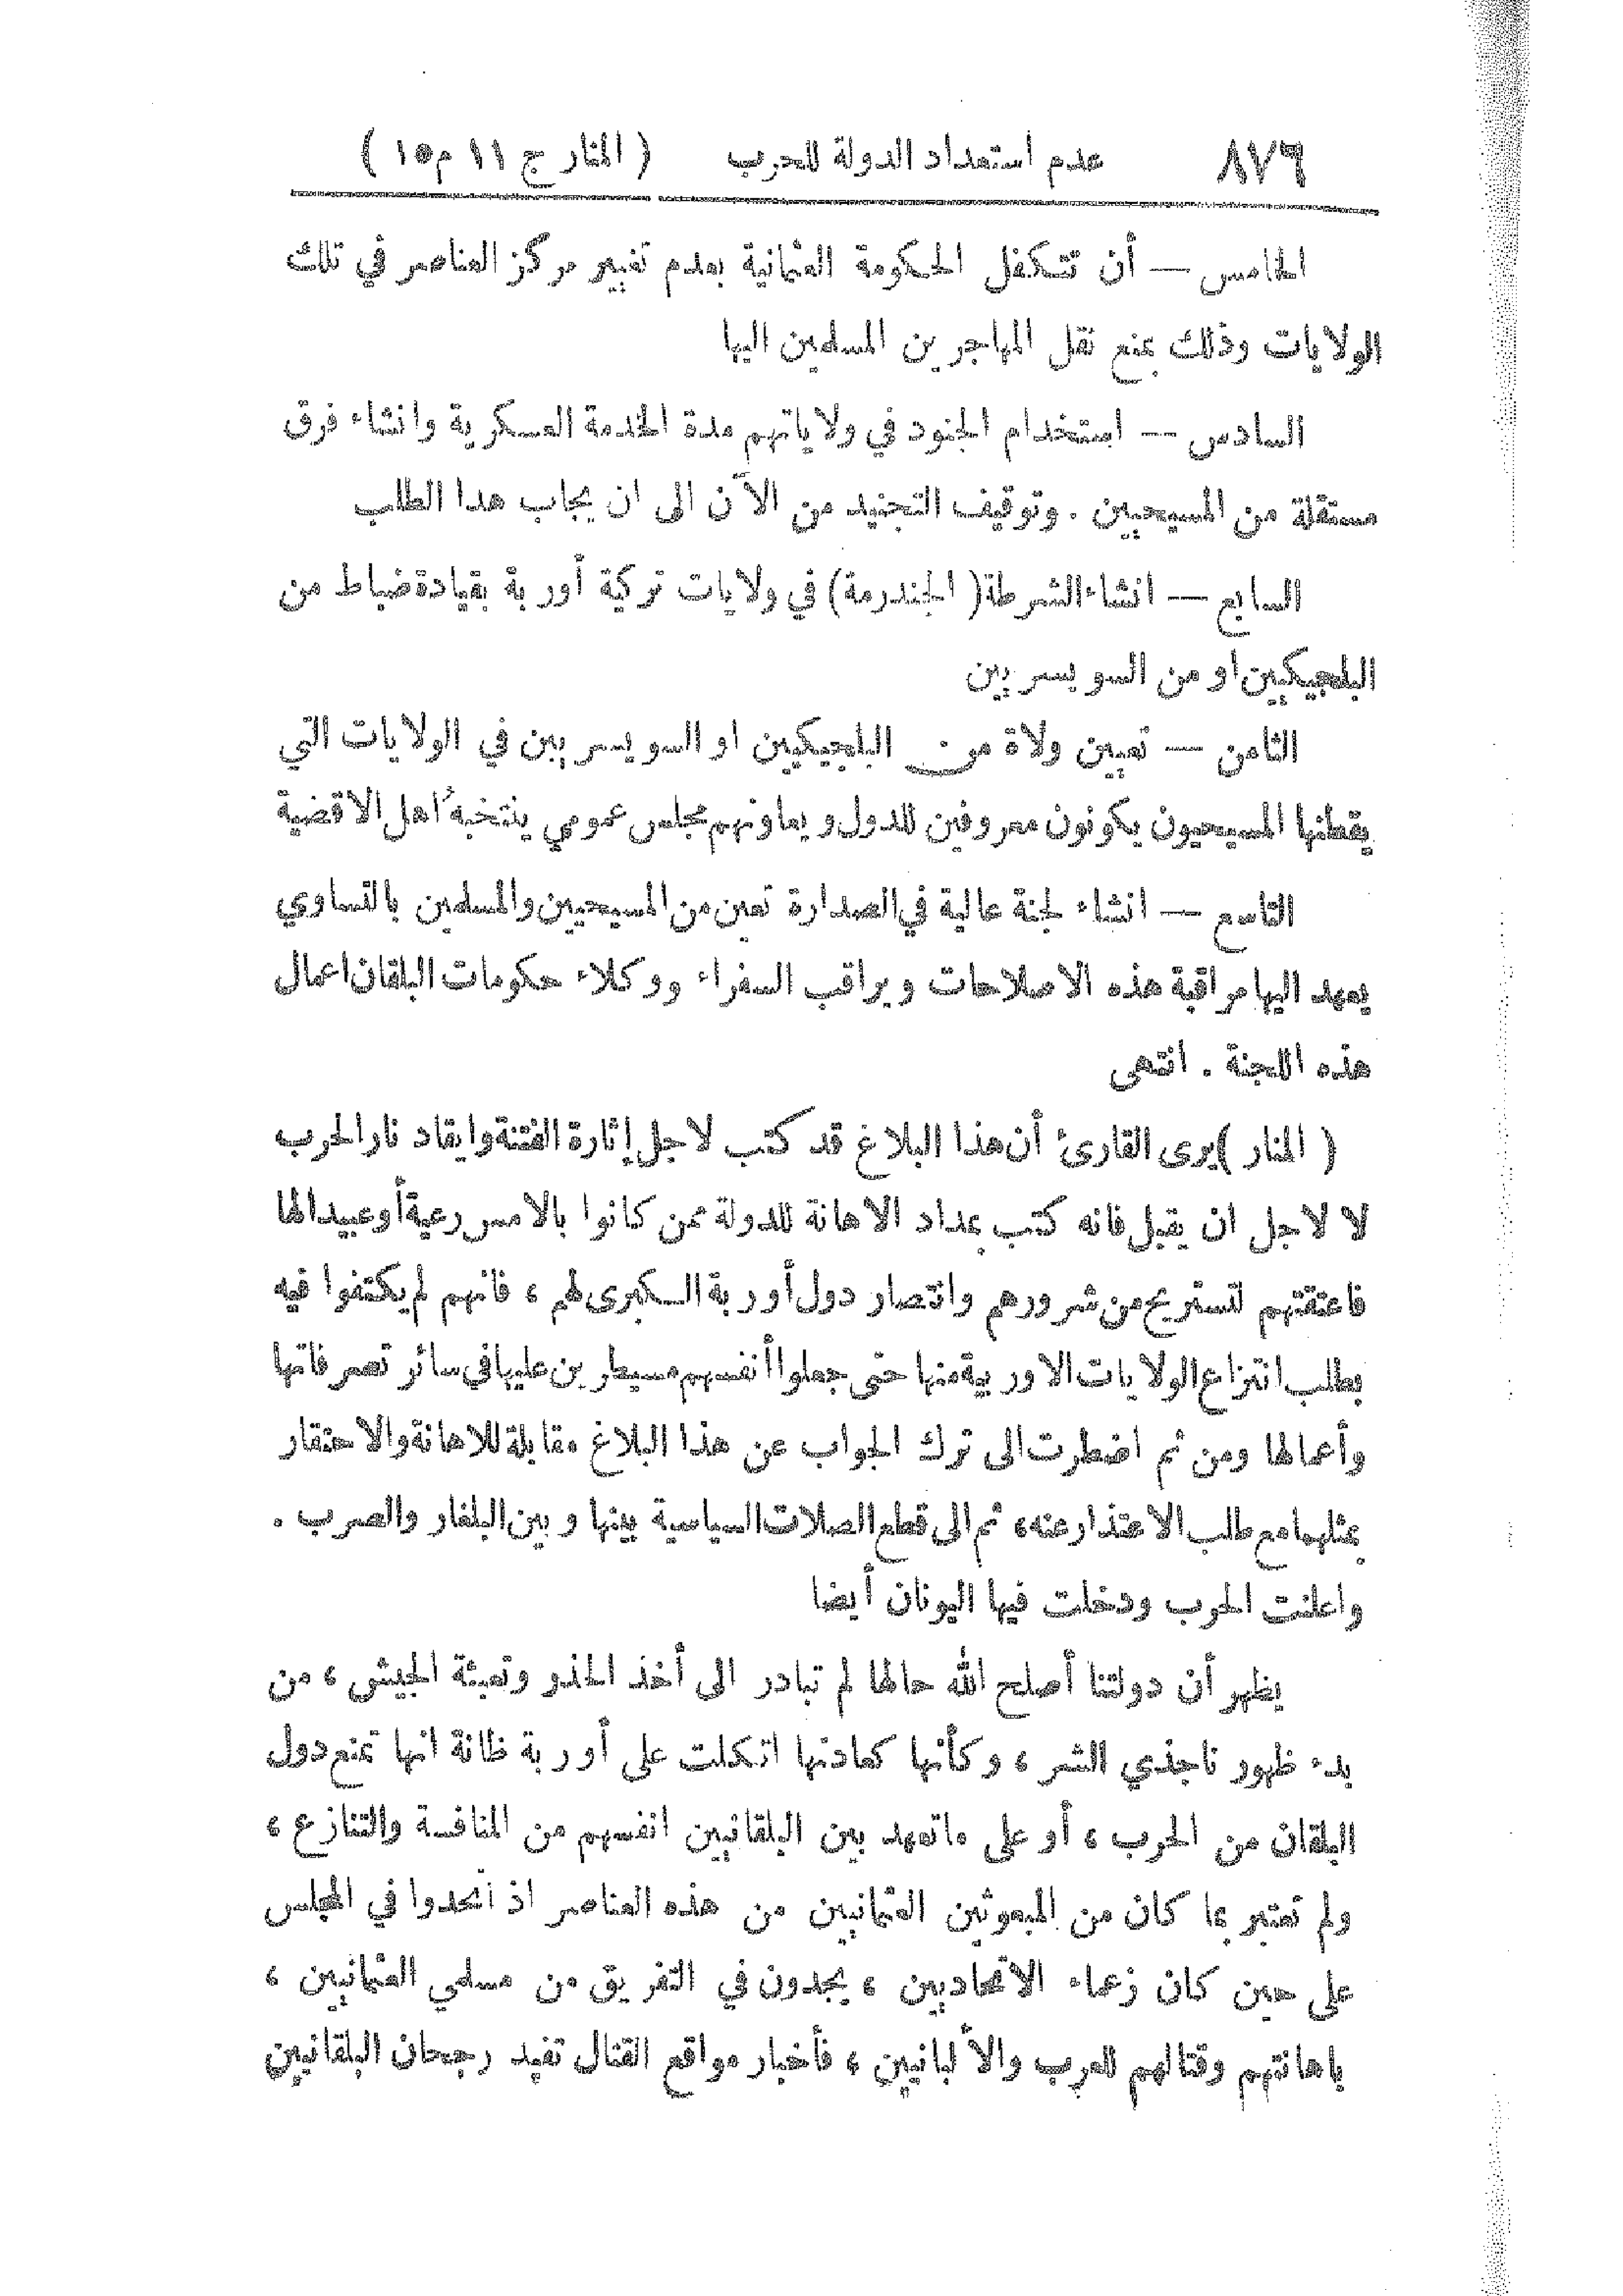 ٨٧٦ عدم استعداد الدولة للحرب ( المنار ج ١١ م ١٥ )
الخامس — أن تتكفل الحكومة العثمانية بعدم تغيير مركز العناصر في تلك
الولايات وذلك بمنع نقل المهاجرين المسلمين اليها
السادس — استخدام الجنود في ولاياتهم مدة الخدمة العسكرية وانشاء فرق
مستقلة من المسيحيين . وتوقيف التجنيد من الآن الى ان يجاب هدا الطلب
السابع — انشاء الشرطة ( الجندرمة ) في ولايات تركية أوربة بقيادة ضباط من
البلجيكيين او من السويسريين
الثامن — تعيين ولاة من البلجيكيين او السويسريين في الولايات التي
يقطنها المسيحيون يكونون معروفين للدول ويعاونهم مجلس عمومي ينتخبه أهل الاقضية
التاسع — انشاء لجنة عالية في الصدارة تعين من المسيحيين والمسلمين بالتساوي
يعهد اليها مراقبة هذه الاصلاحات ويراقب السفراء ووكلاء حكومات البلقان اعمال
هذه اللجنة . انتهى
( المنار ) يرى القارئ أن هذا البلاغ قد كتب لاجل إثارة الفتنة وايقاد نار الحرب
لا لاجل ان يقبل فانه كتب بمداد الاهانة للدولة ممن كانوا بالامس رعية أو عبيدا لها
فاعتقتهم لتستريح من شرورهم وانتصار دول أوربة الكبرى لهم ، فانهم لم يكتفوا فيه
بطلب انتزاع الولايات الاوربية منها حتى جعلوا أنفسهم مسيطرين عليها في سائر تصرفاتها
وأعمالها ومن ثم اضطرت الى ترك الجواب عن هذا البلاغ مقابلة للاهانة والاحتقار
بمثلهما مع طلب الاعتذار عنه ، ثم الى قطع الصلات السياسية بينها وبين البلغار والصرب .
واعلنت الحرب ودخلت فيها اليونان أيضا
يظهر أن دولتنا أصلح الله حالها لم تبادر الى أخذ الحذر وتعبئة الجيش ، من
بدء ظهور ناجذي الشر ، وكأنها كعادتها اتكلت على أوربة ظانة انها تمنع دول
البلقان من الحرب ، أو على ما تعهد بين البلقانيين انفسهم من المنافسة والتنازع ،
ولم تعتبر بما كان من المبعوثين العثمانيين من هذه العناصر اذ اتحدوا في المجلس
على حين كان زعماء الاتحاديين ، يجدون في التفريق من مسلمي العثمانيين ،
باهانتهم وقتالهم للعرب والألبانيين ، فأخبار مواقع القتال تفيد رجحان البلقانيين